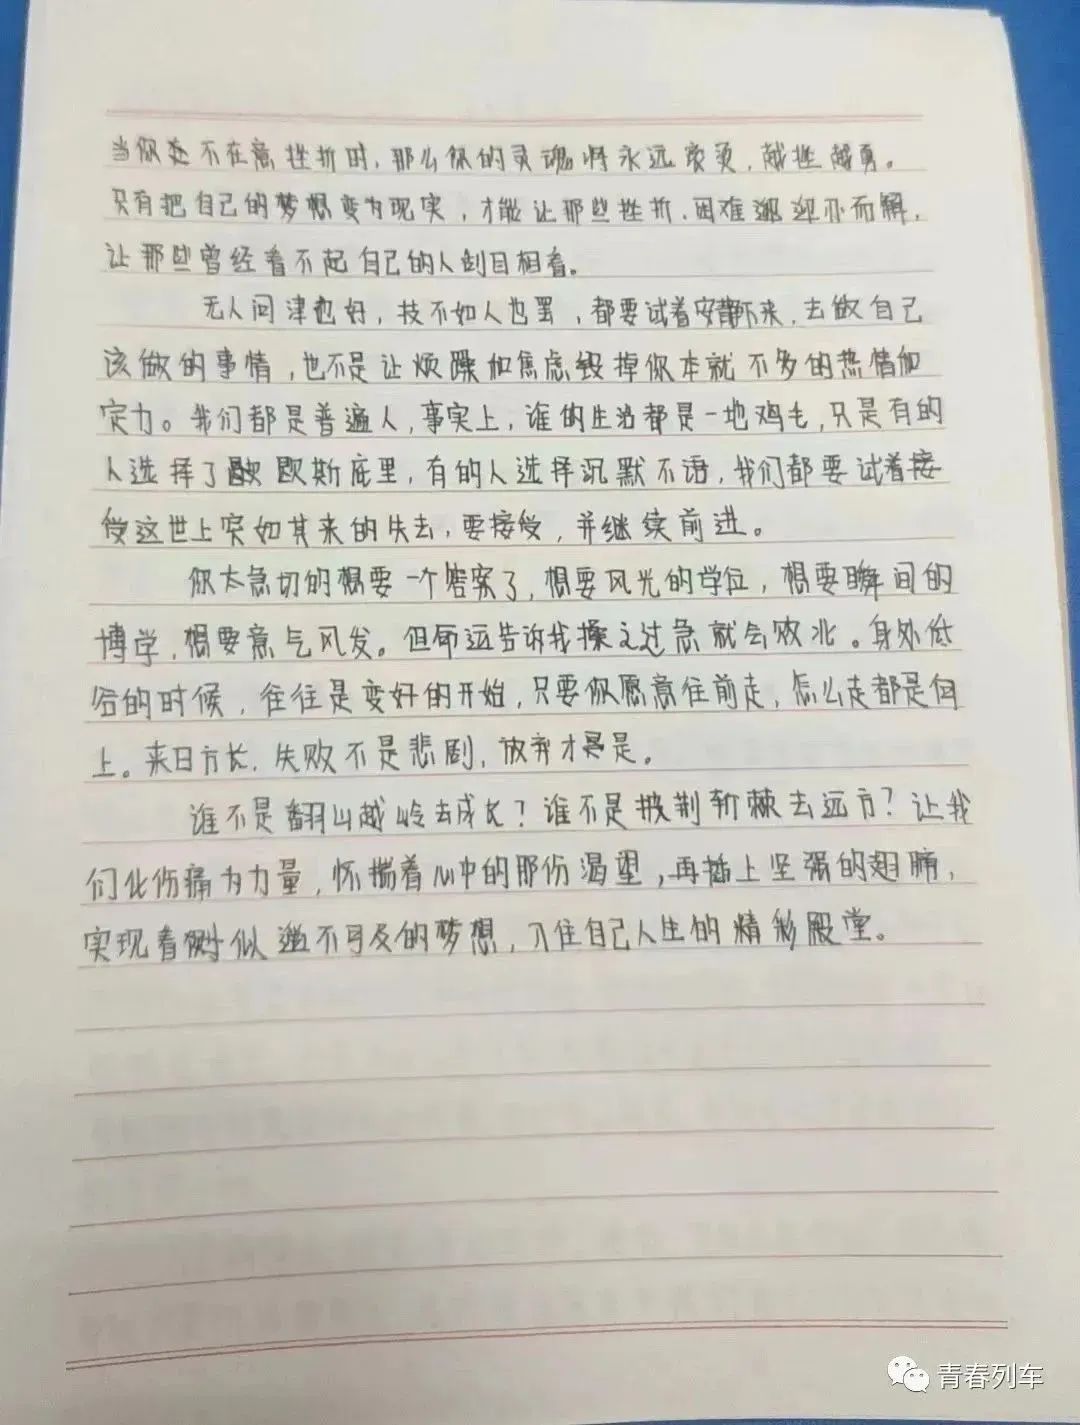 当你处不在意挫折时,那么你的灵魂将永远滚烫,越挫越勇。
只有把自己的梦想变为现实,才能让那些挫折、困难迎刃而解,
让那些曾经看不起自己的人刮目相看。
无人问津也好,技不如人也罢,都要试着安静下来,去做自己
该做的事情,也不是让烦躁和焦虑毁掉你本就不多的热情和
定力。我们都是普遍人,事实上,谁的生活都是一地鸡毛,只是有的
人选择了歇斯底里,有的人选择沉默不语,我们都要试着接
受这世上突如其来的失去,要接受,并继续前进。
你太急切的想要一个答案了,想要风光的学位,想要瞬间的
博学,想要意气风发。但命运告诉我操之过急就会败北。身处低
谷的时候,往往是变好的开始,只要你愿意往前走,怎么走都是向
上。来日方长,失败不是悲剧,放弃才是。
谁不是翻山越岭去成长?谁不是披荆斩棘去远方?让我
们化伤痛为力量,怀揣着心中的那份渴望,再插上坚强的翅膀,
实现看似遥不可及的梦想,入住自己人生的精彩殿堂。
青春列车